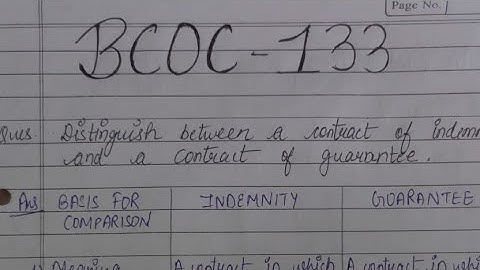 Page No.
BCOC-133
Ques. Distinguish between a contract of indemn
and a contract of guarantee.
Ans BASIS FOR COMPARISON INDEMNITY GOARANTEE
Meaning A contract in which A contract in wh